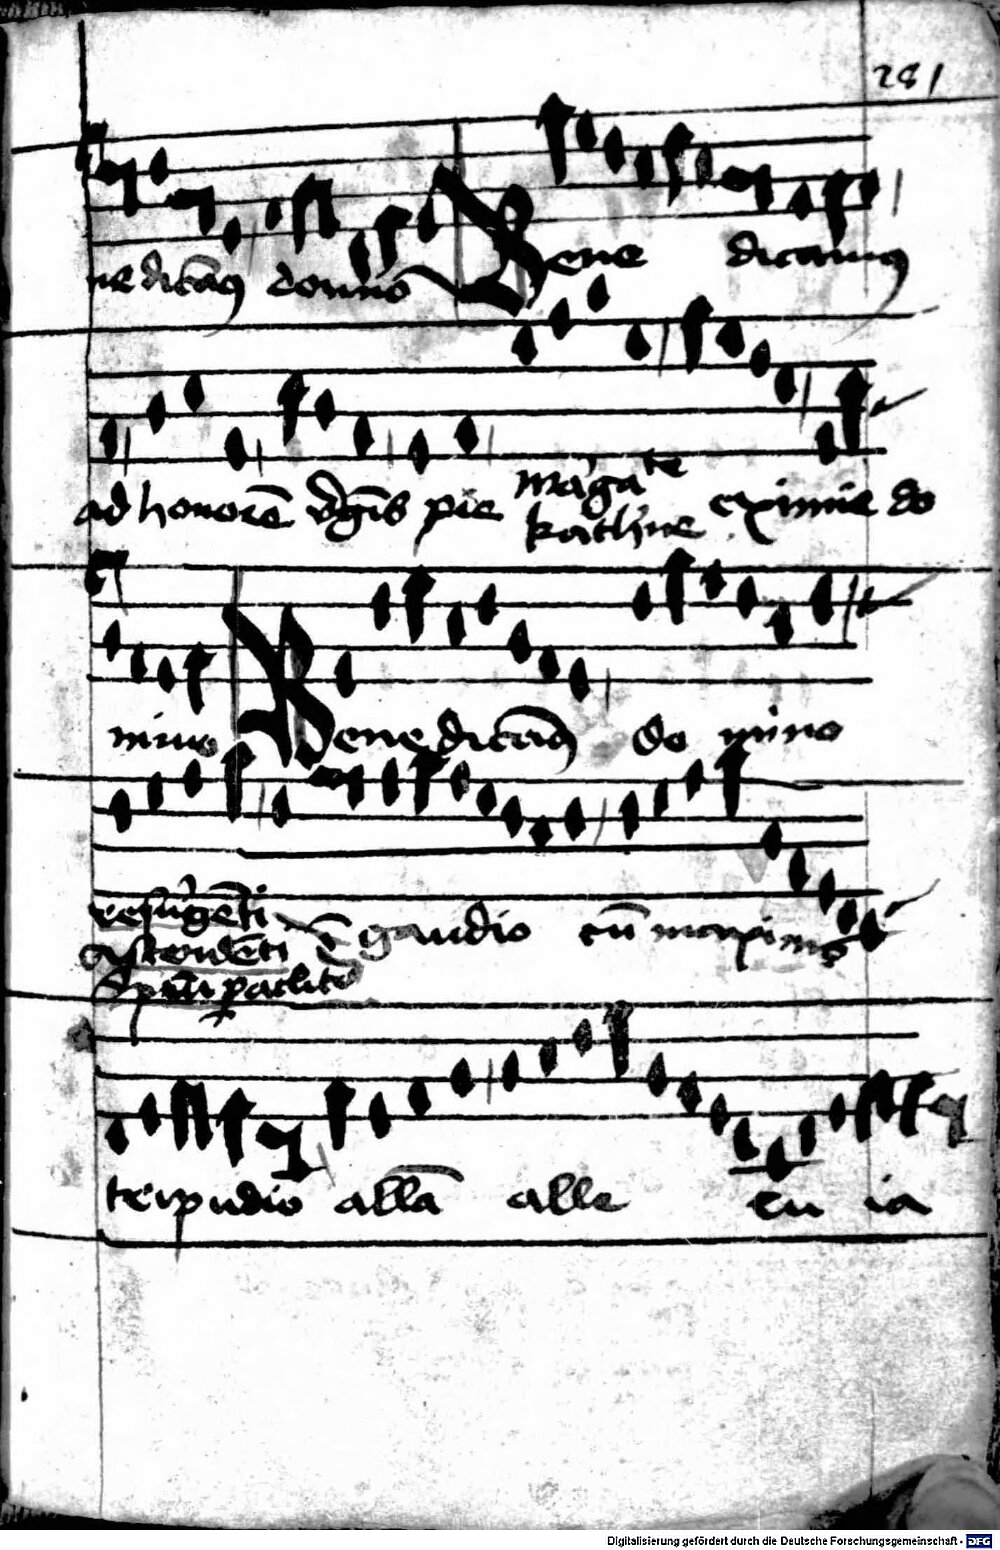 281
nedicam9 domino Bene dicam9
ad honorē v̄gīs pie margate eximie do
katherine
mino Benedicam9 do mino
resurgēti
ascendēti ī gaudio cū maximo
spūi paclito
tripudio allā alle lu ia
Digitalisierung gefördert durch die Deutsche Forschungsgemeinschaft - DFG